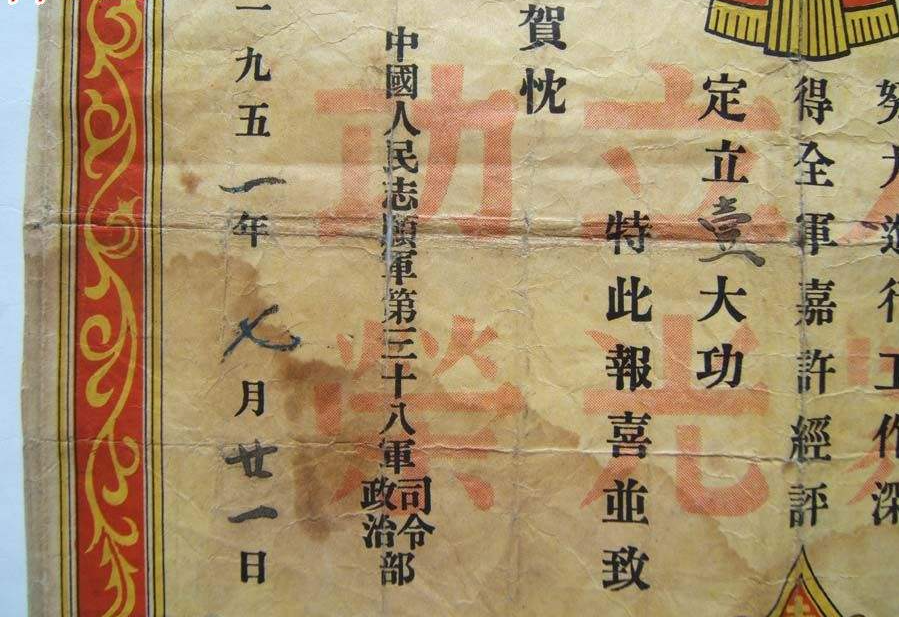 努力進行工作深
得全軍嘉許經評
定立壹大功
特此報喜並致
賀忱
中國人民志願軍第三十八軍司令政治部
一九五一年七月廿一日
立功
光榮